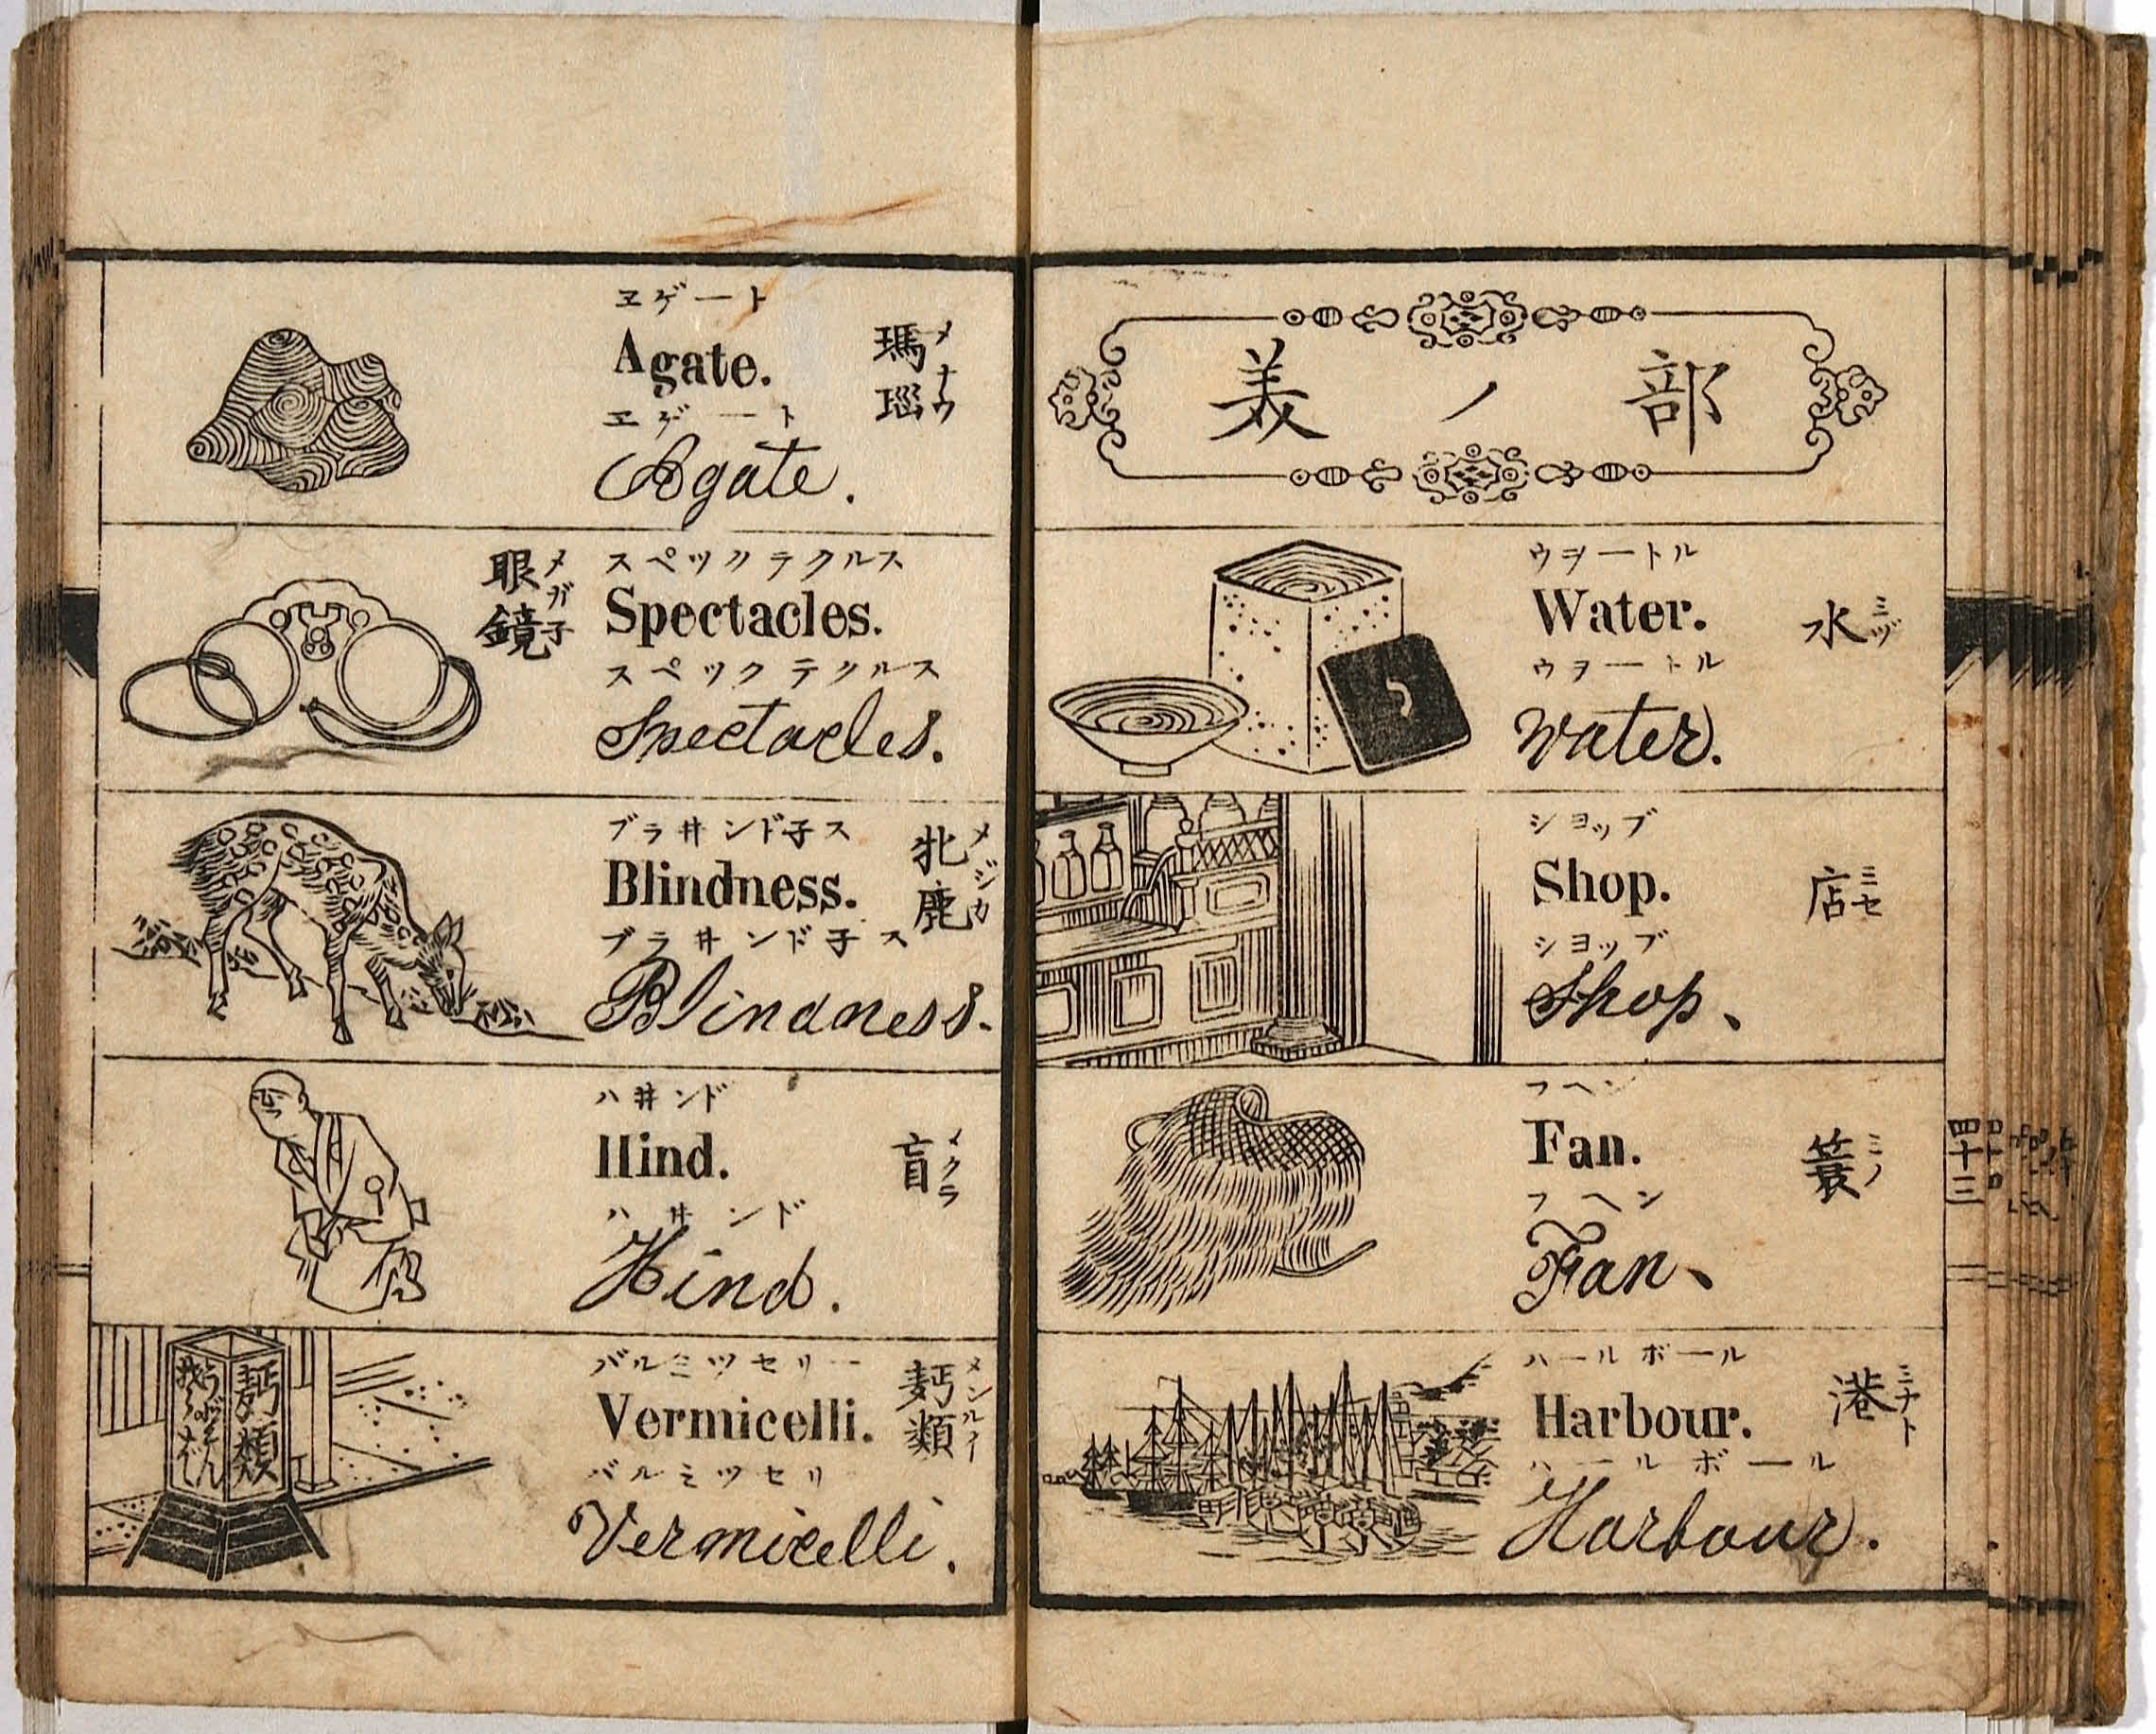 美ノ部
ウヲートル
Water.
水 ミヅ
ウヲートル
Water.
ショップ
Shop.
店 ミセ
ショップ
Shop.
フヘン
Fan.
簑 ミノ
フヘン
Fan.
ハールボール
Harbour.
港 ミナト
ハールボール
Harbour.
四十三
ヱゲート
Agate.
瑪瑙 メナウ
ヱゲート
Agate.
スペックテクルス
Spectacles.
眼鏡 メガ子
スペックテクルス
Spectacles.
ブラ井ンド子ス
Blindness.
牝鹿 メジカ
ブラ井ンド子ス
Blindness.
ハ井ンド
Hind.
盲 メクラ
ハ井ンド
Hind.
バルミツセリー
Vermicelli.
麪類 メンルイ
バルミツセリ
Vermicelli.
麪類